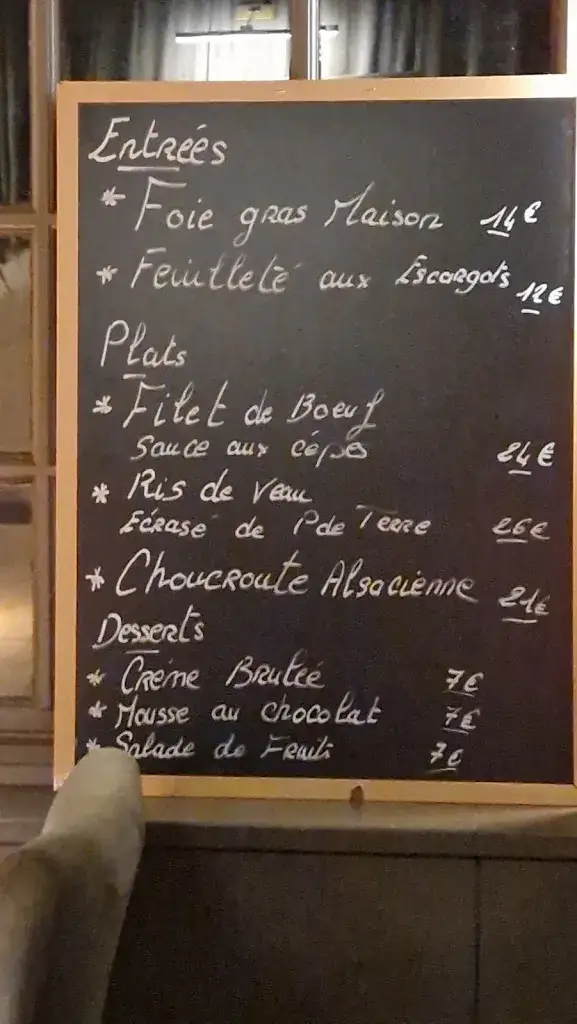 Entrées
* Foie gras Maison 14€
* Feuilleté aux Escargots 12€
Plats
* Filet de Boeuf
Sauce aux cépes 24€
* Ris de Veau
Ecrasé de P de Terre 26€
* Choucroute Alsacienne 21€
Desserts
* Créme Brulée 7€
* Mousse au chocolat 7€
* Salade de Fruits 7€